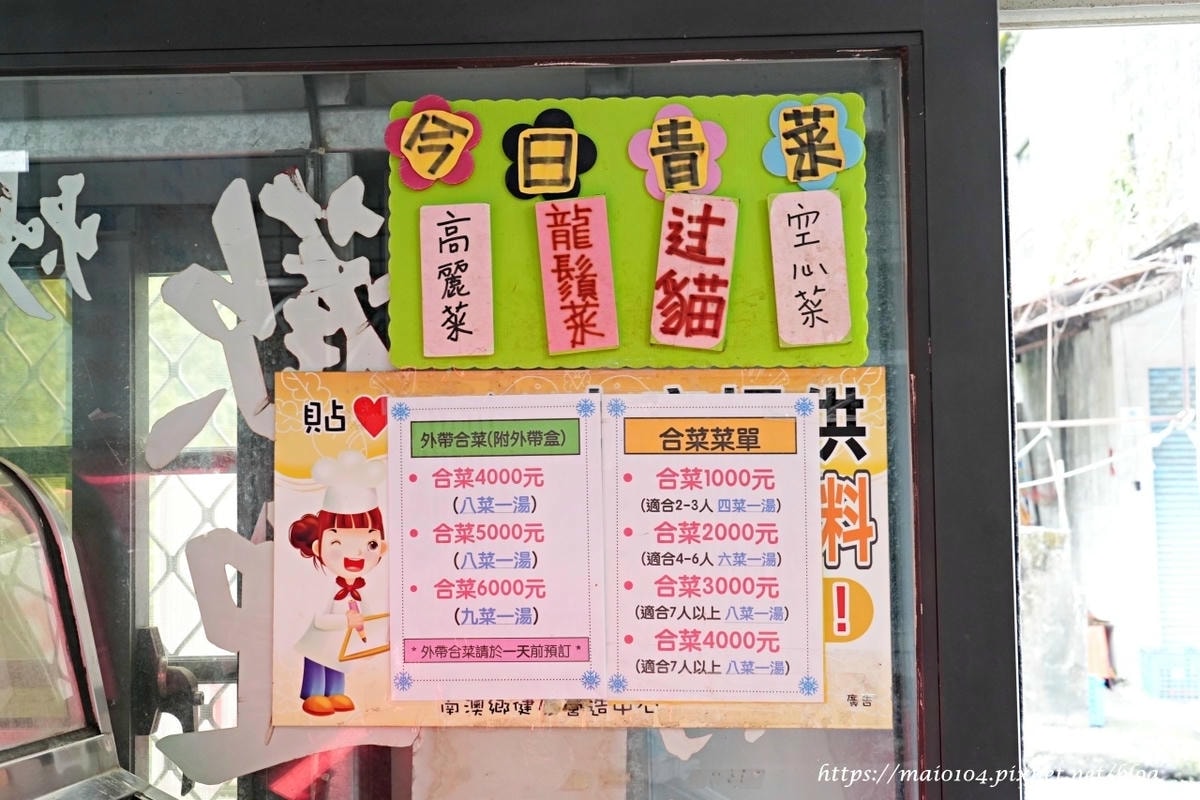 今日青菜
高麗菜
龍鬚菜
过貓
空心菜
貼
供
料
!
外帶合菜(附外帶盒)
• 合菜4000元
(八菜一湯)
• 合菜5000元
(八菜一湯)
• 合菜6000元
(九菜一湯)
* 外帶合菜請於一天前預訂 *
合菜菜單
• 合菜1000元
(適合2-3人 四菜一湯)
• 合菜2000元
(適合4-6人 六菜一湯)
• 合菜3000元
(適合7人以上 八菜一湯)
• 合菜4000元
(適合7人以上 八菜一湯)
南澳鄉健 營造中心
廣告
https://maio104.pixnet.net/blog